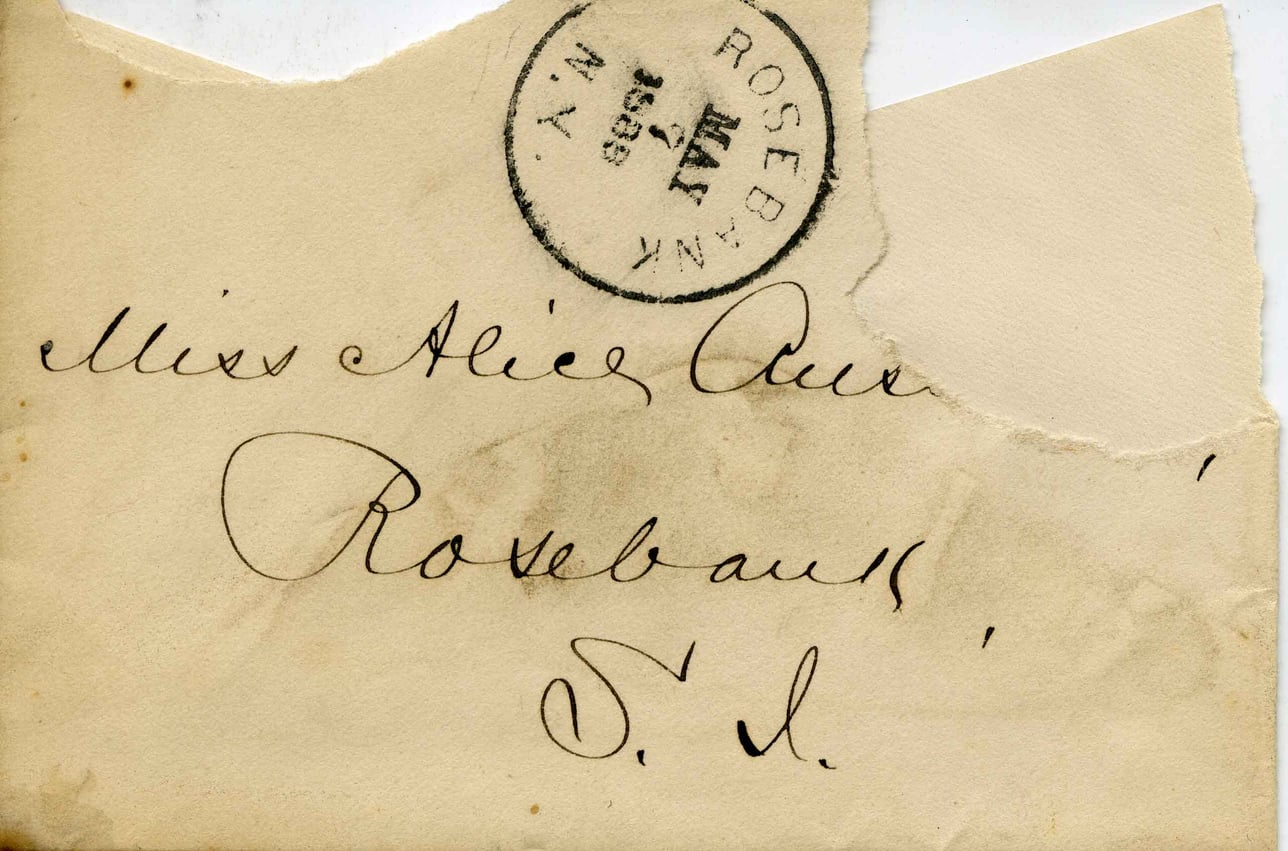 ROSEBANK N.Y.
MAY
7
1888
Miss Alice Aus
Rosebank,
S. I.